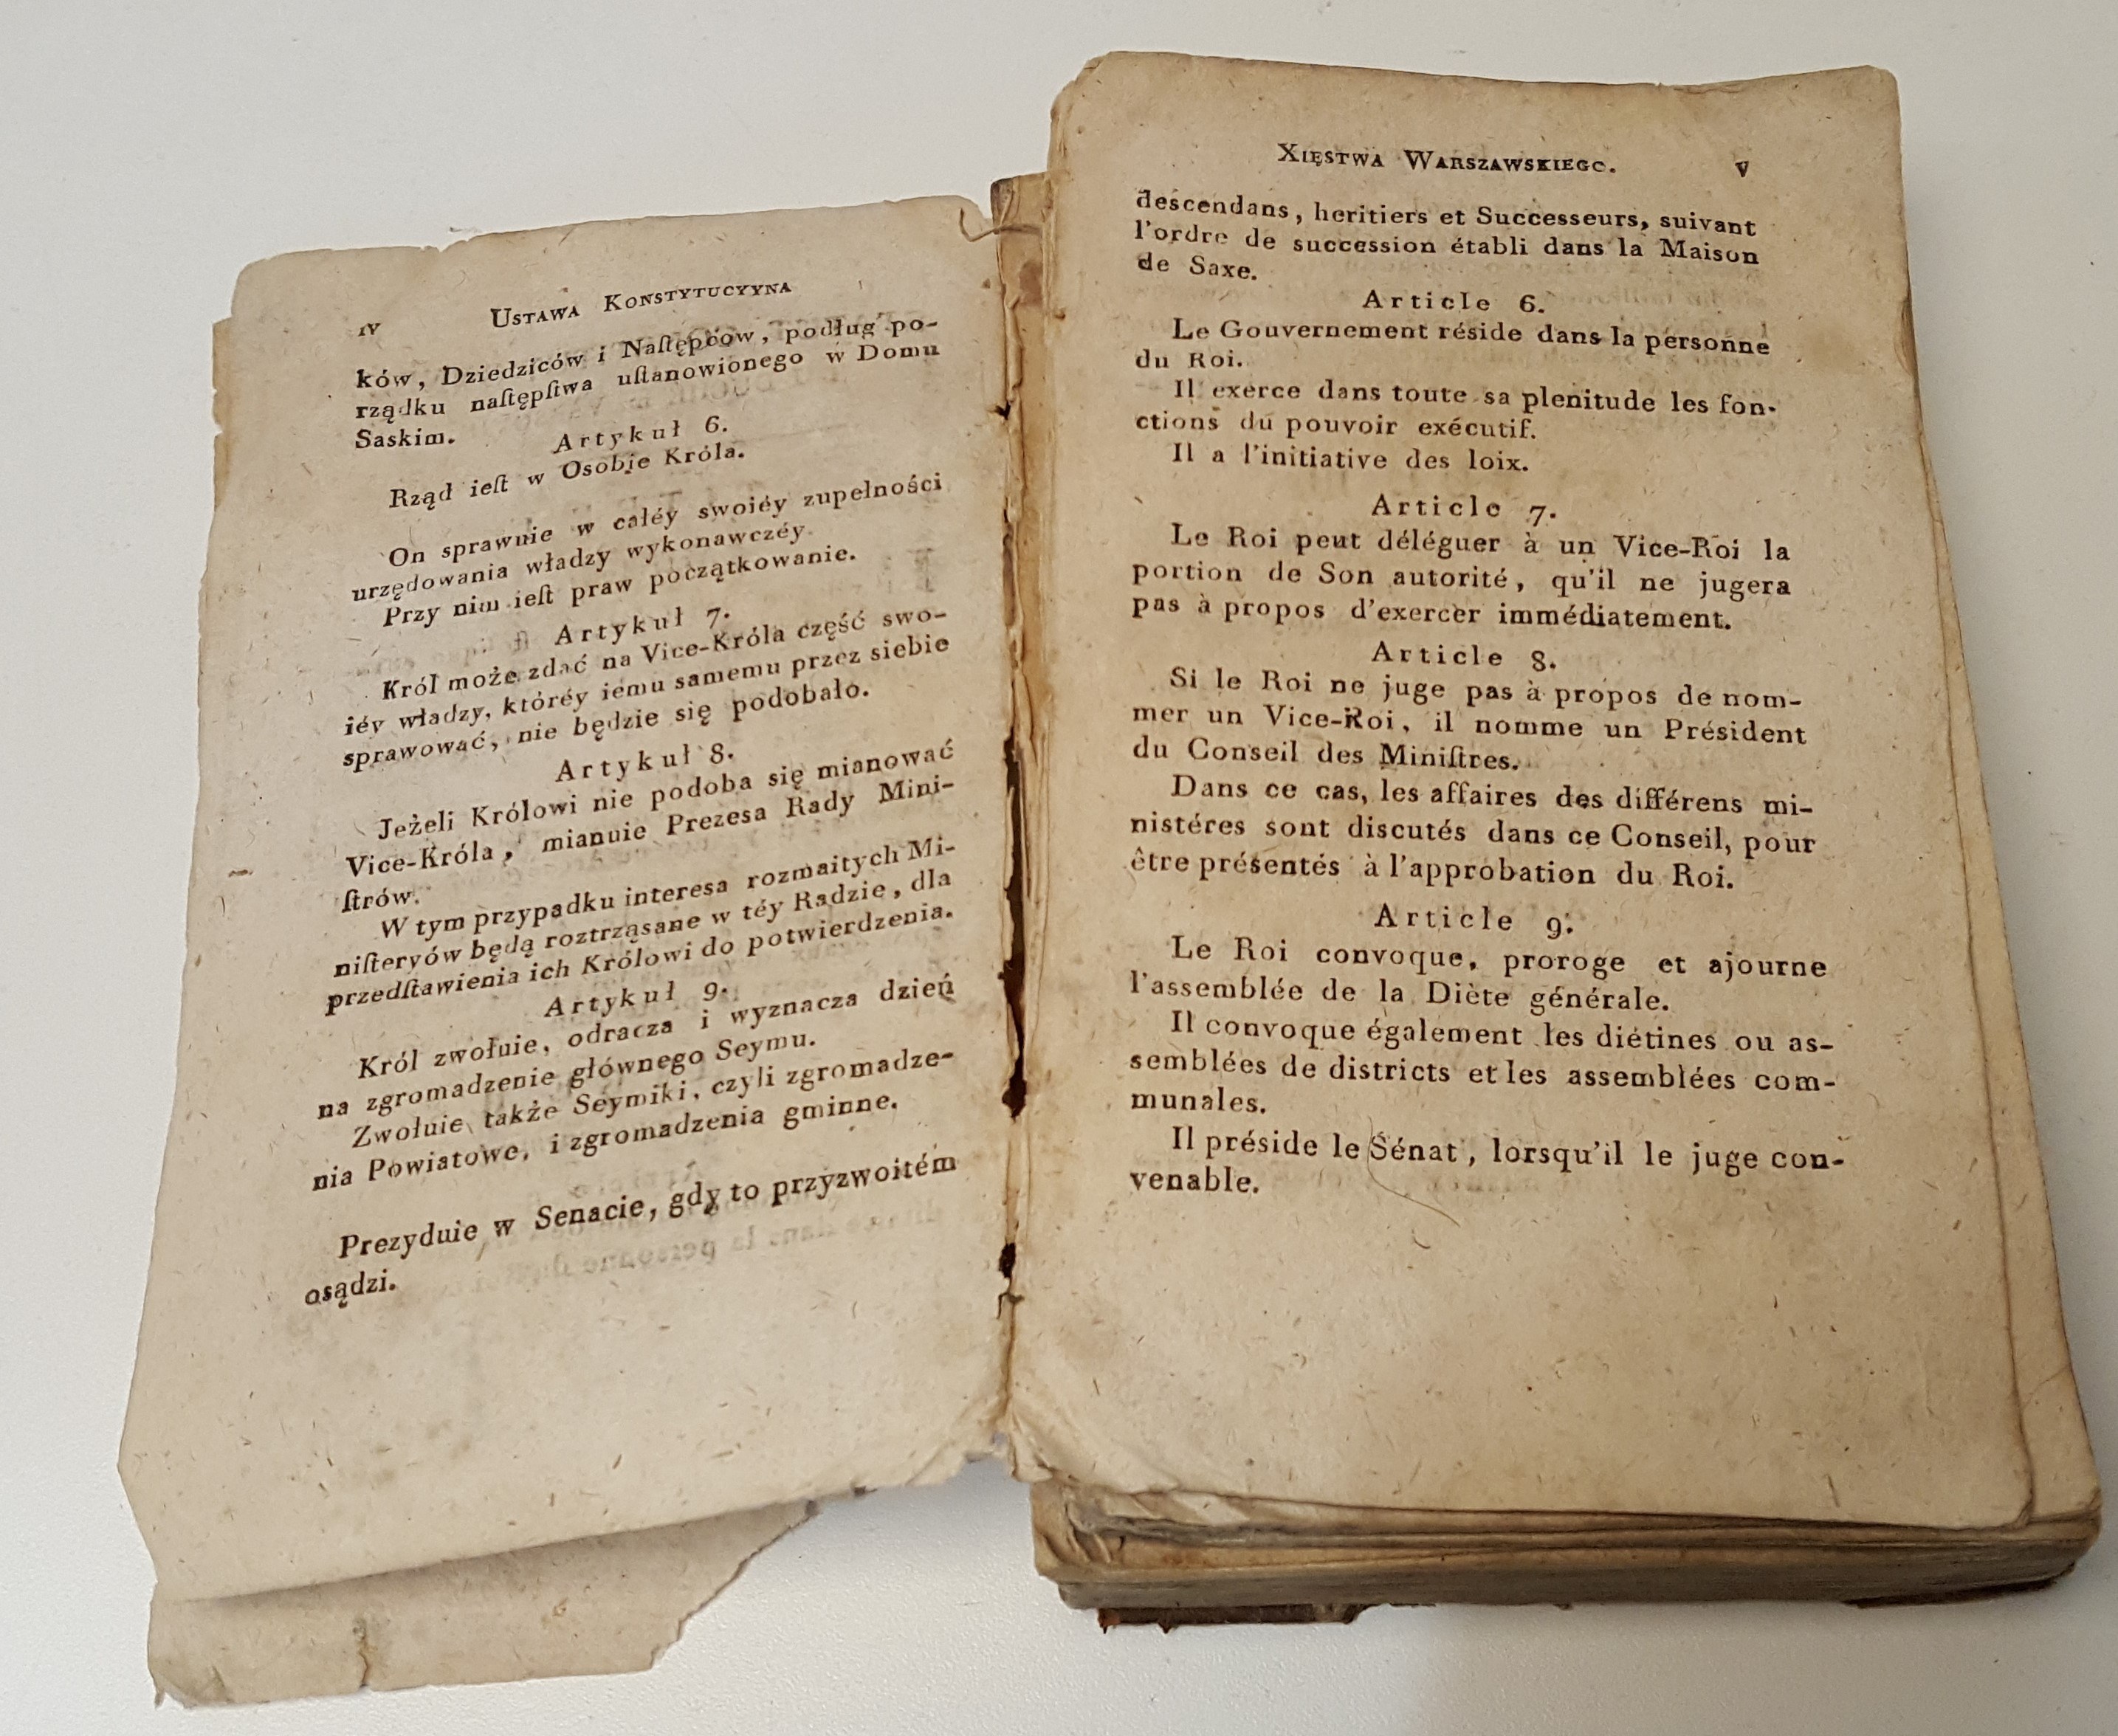 IV USTAWA KONSTYTUCYYNA
ków, Dziedziców i Naſtępców, podług po-
rządku naſtępſtwa uſtanowionego w Domu
Saskim.
Artykuł 6.
Rząd ieſt w Osobie Króla.
On sprawuie w całéy swoiéy zupełności
urzędowania władzy wykonawczéy.
Przy nim ieſt praw początkowanie.
Artykuł 7.
Król może zdać na Vice-Króla część swo-
iéy władzy, któréy iemu samemu przez siebie
sprawować, nie będzie się podobało.
Artykuł 8.
Jeżeli Królowi nie podoba się mianować
Vice-Króla, mianuie Prezesa Rady Mini-
ſtrów.
W tym przypadku interesa rozmaitych Mi-
niſteryów będą roztrząsane w téy Radzie, dla
przedſtawienia ich Królowi do potwierdzenia.
Artykuł 9.
Król zwołuie, odracza i wyznacza dzień
na zgromadzenie głównego Seymu.
Zwołuie także Seymiki, czyli zgromadze-
nia Powiatowe, i zgromadzenia gminne.
Prezyduie w Senacie, gdy to przyzwoitém
osądzi.
XIĘSTWA WARSZAWSKIEGO. V
descendans, heritiers et Successeurs, suivant
l'ordre de succession établi dans la Maison
de Saxe.
Article 6.
Le Gouvernement réside dans la personne
du Roi.
Il exerce dans toute sa plenitude les fon-
ctions du pouvoir exécutif.
Il a l'initiative des loix.
Article 7.
Le Roi peut déléguer à un Vice-Roi la
portion de Son autorité, qu'il ne jugera
pas à propos d'exercer immédiatement.
Article 8.
Si le Roi ne juge pas à propos de nom-
mer un Vice-Roi, il nomme un Président
du Conseil des Miniſtres.
Dans ce cas, les affaires des différens mi-
nistéres sont discutés dans ce Conseil, pour
être présentés à l'approbation du Roi.
Article 9.
Le Roi convoque, proroge et ajourne
l'assemblée de la Diète générale.
Il convoque également les diétines ou as-
semblées de districts et les assemblées com-
munales.
Il préside le Sénat, lorsqu'il le juge con-
venable.